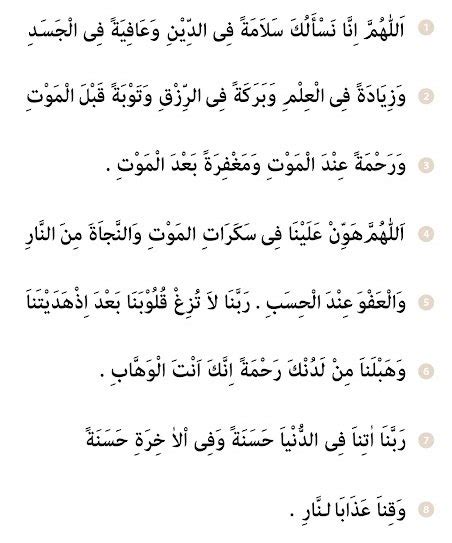 1 اَللّٰهُمَّ اِنَّا نَسْأَلُكَ سَلاَمَةً فِى الدِّيْنِ وَعَافِيَةً فِى الْجَسَدِ
2 وَزِيَادَةً فِى الْعِلْمِ وَبَرَكَةً فِى الرِّزْقِ وَتَوْبَةً قَبْلَ الْمَوْتِ
3 وَرَحْمَةً عِنْدَ الْمَوْتِ وَمَغْفِرَةً بَعْدَ الْمَوْتِ .
4 اَللّٰهُمَّ هَوِّنْ عَلَيْنَا فِى سَكَرَاتِ المَوْتِ وَالنَّجاَةَ مِنَ النَّارِ
5 وَالْعَفْوَ عِنْدَ الْحِسَبِ . رَبَّنَا لاَ تُزِغْ قُلُوْبَنَا بَعْدَ اِذْهَدَيْتَناَ
6 وَهَبْلَناَ مِنْ لَدُنْكَ رَحْمَةً اِنَّكَ اَنْتَ الْوَهَّابِ .
7 رَبَّنَا اٰتِناَ فِى الدُّنْياَ حَسَنَةً وَفِى اْلاٰ خِرَةِ حَسَنَةً
8 وَقِناَ عَذَابَا لنَّارِ .